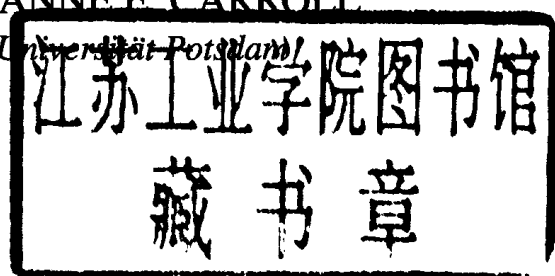 CARROLL
Universität Potsdam
江苏工业学院图书馆
藏书章